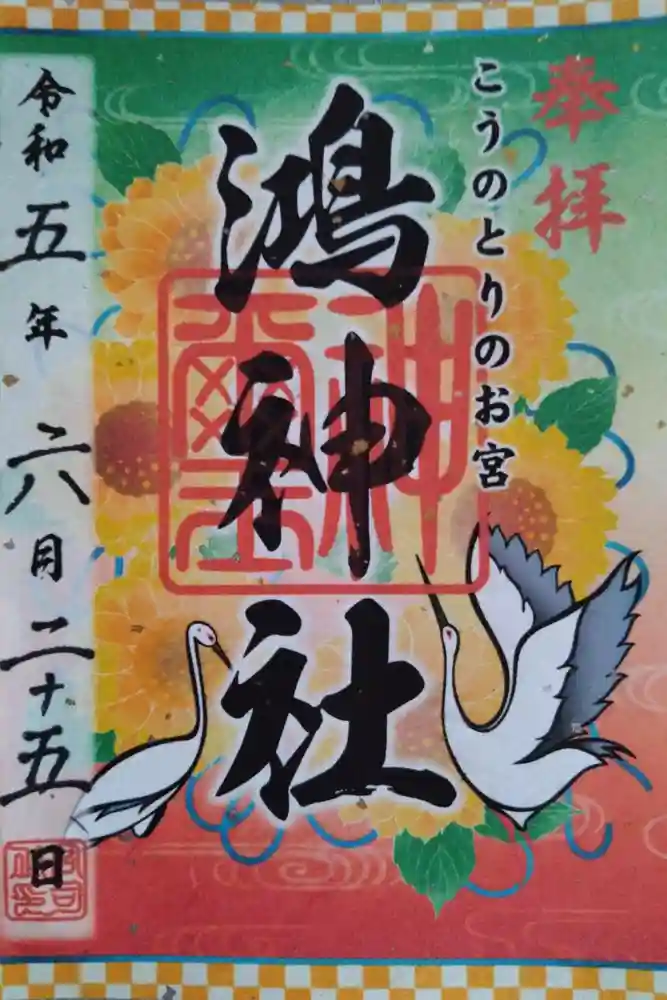 奉拝
こうのとりのお宮
鴻神社
神璽
令和五年六月二十五日